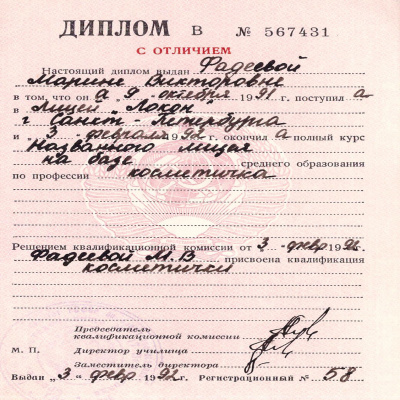 ДИПЛОМ В № 567431
С ОТЛИЧИЕМ
Настоящий диплом выдан Фадеевой
Марине Викторовне
в том, что он а 9 октября 1991 г. поступил а
в Лицей „Локон"
г Санкт-Петербурга
и „3" февраля 1992 г. окончил а полный курс
Названного лицея
на базе среднего образования
по профессии косметичка
Решением квалификационной комиссии от 3 февр 1992
Фадеевой М.В. присвоена квалификация
косметички
Председатель
квалификационной комиссии
М. П. Директор училища
Заместитель директора
Выдан „3" февр 1992 г. Регистрационный № 58